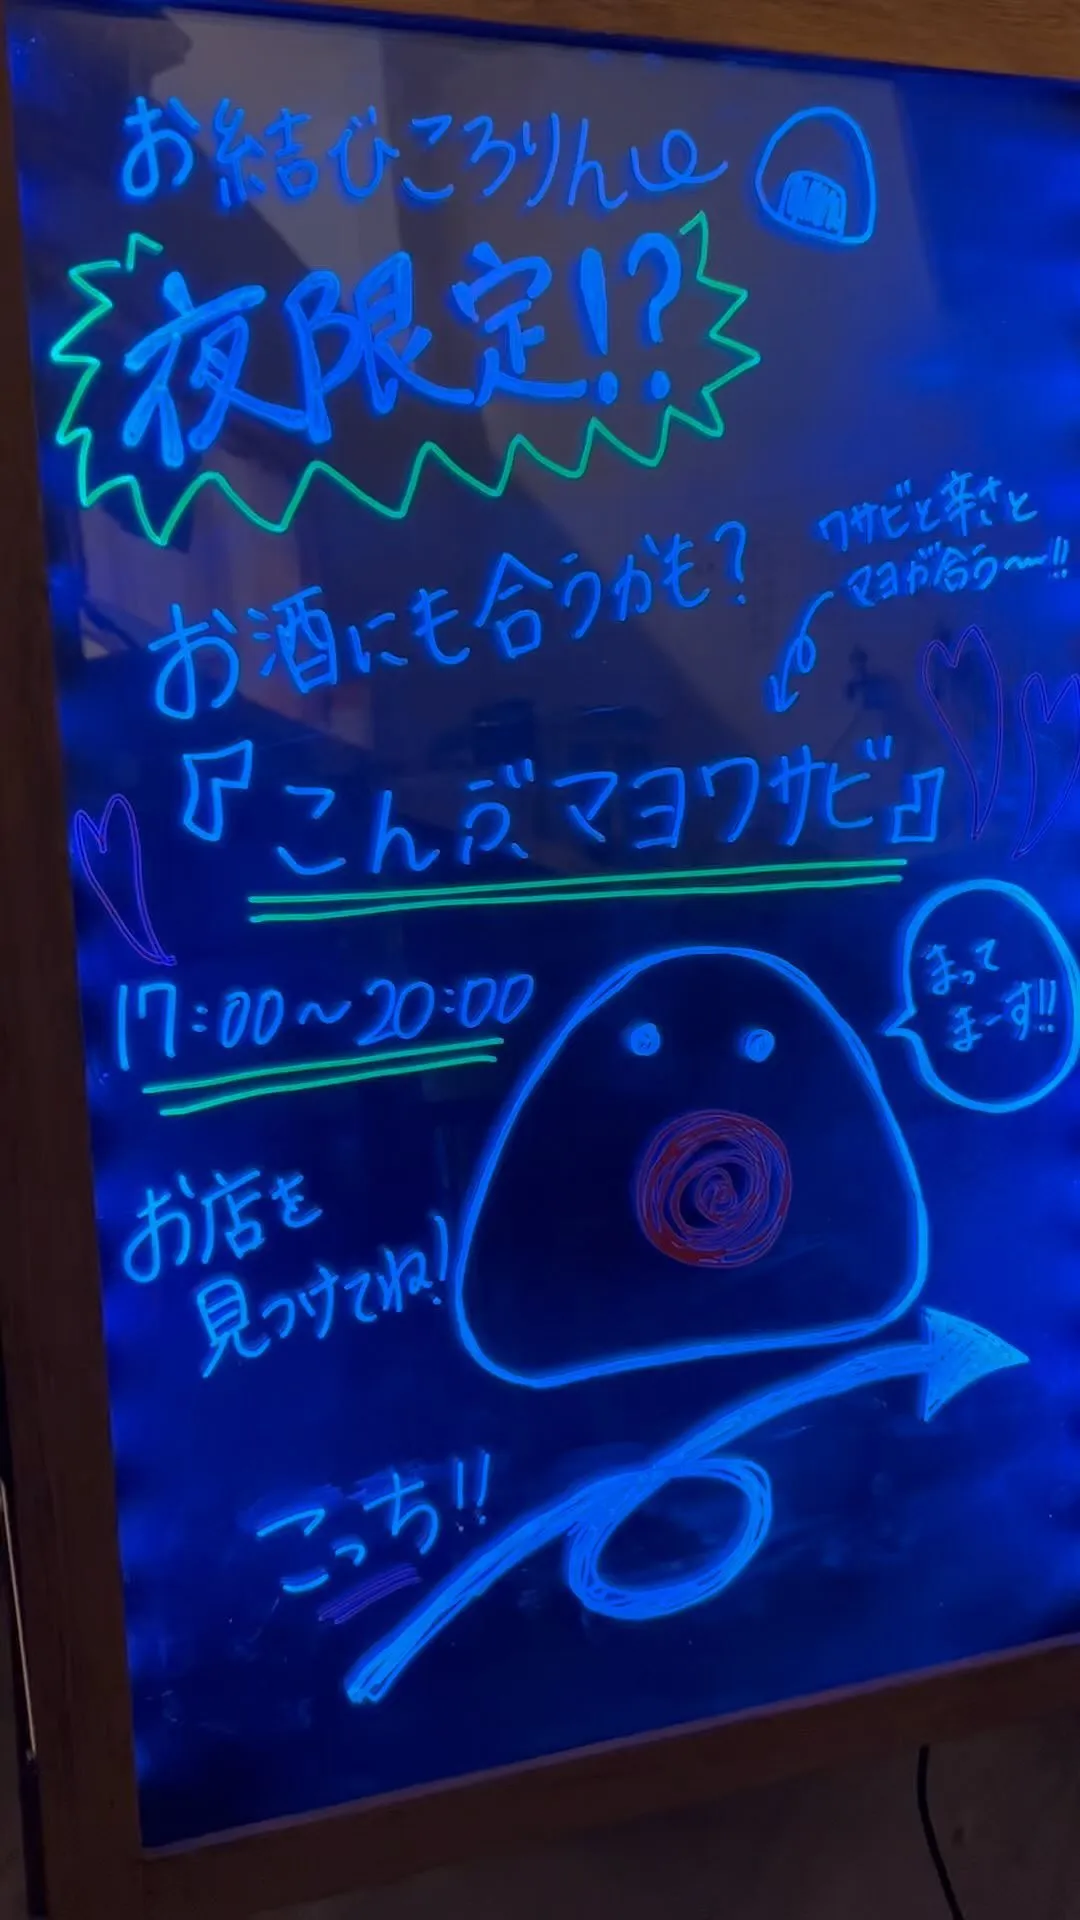 お結びころりん
夜限定!?
お酒にも合うかも?
ワサビと辛さと
マヨが合う〜!!
『こんぶマヨワサビ』
17:00〜20:00
まって
まーす!!
お店を
見つけてね!
こっち!!